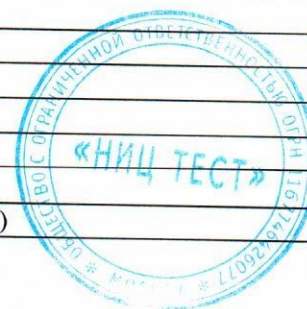 ОБЩЕСТВО С ОГРАНИЧЕННОЙ ОТВЕТСТВЕННОСТЬЮ ОГРН 1167746426077
«НИЦ ТЕСТ»
* МОСКВА *
)